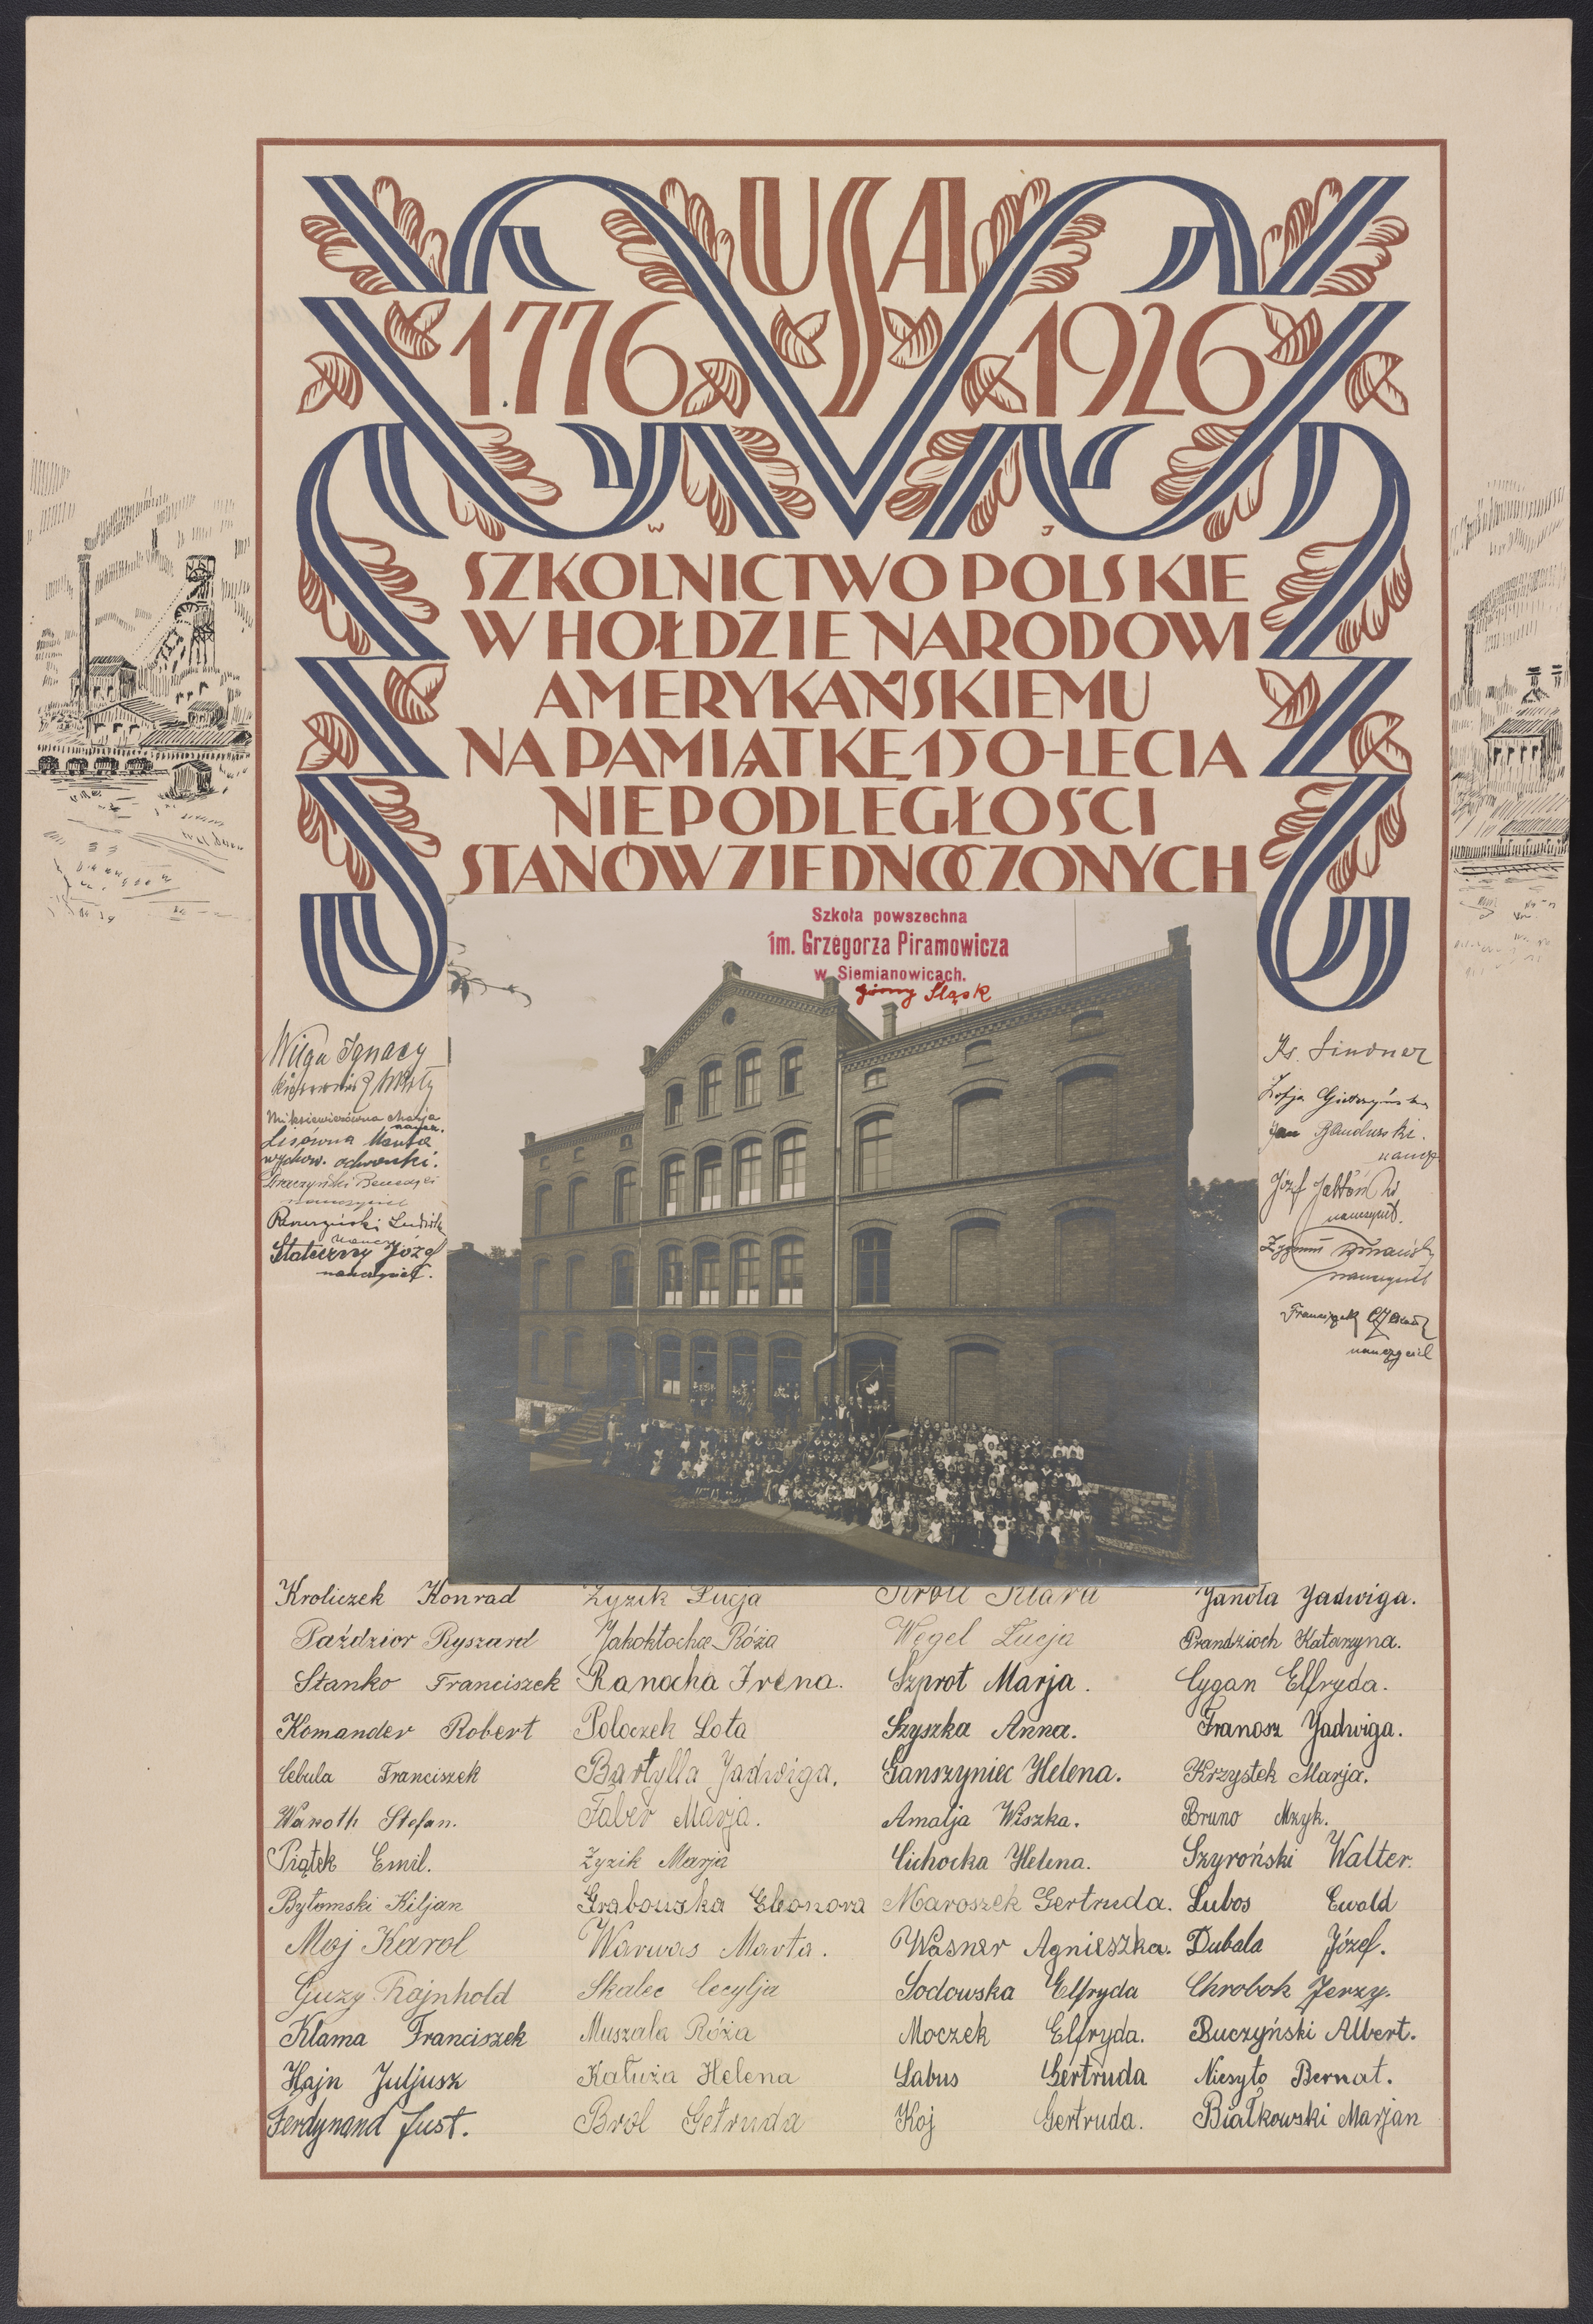 USA
1776 1926
SZKOLNICTWO POLSKIE
W HOŁDZIE NARODOWI
AMERYKAŃSKIEMU
NA PAMIĄTKĘ 150-LECIA
NIEPODLEGŁOŚCI
STANÓW ZJEDNOCZONYCH
Szkoła powszechna
im. Grzegorza Piramowicza
w Siemianowicach.
Górny Śląsk
Wilga Ignacy
Miksiewiczówna Marja
naucz.
Lisówna Marta
wychow. ochronki.
nauczyciel
Ludwik
naucz.
Stateczny Józef
nauczyciel.
Ks. Lindner
Zofja
Jan Bandurski.
naucz.
Józef Jabłoński
nauczyciel.
Zygmunt
nauczyciel
Franciszek
nauczyciel
Kroliczek Konrad Zyzik Łucja Kroll Klara Janota Jadwiga.
Paździor Ryszard Jakoktocha Róża Węgel Łucja Prandzioch Katarzyna.
Stanko Franciszek Ranocha Irena. Szprot Marja. Cygan Elfryda.
Komander Robert Poloczek Lota Szyszka Anna. Franosz Jadwiga.
Cebula Franciszek Bartylla Jadwiga. Ganszyniec Helena. Krzystek Marja.
Waroth Stefan. Faber Marja. Amalja Wiszka. Bruno Mzyk.
Piątek Emil. Zyzik Marja Cichocka Helena. Szyroński Walter.
Bytomski Kiljan Grabowska Eleonora Maroszek Gertruda. Lubos Ewald
Moj Karol Warwas Marta. Wasner Agnieszka. Dubala Józef.
Guzy Rajnhold Skalec Cecylja Sodowska Elfryda Chrobok Jerzy.
Klama Franciszek Muszala Róża Moczek Elfryda. Buczyński Albert.
Hajn Juljusz Kałuża Helena Labus Gertruda Niesyto Bernat.
Ferdynand Just. Brol Getruda Koj Gertruda. Białkowski Marjan